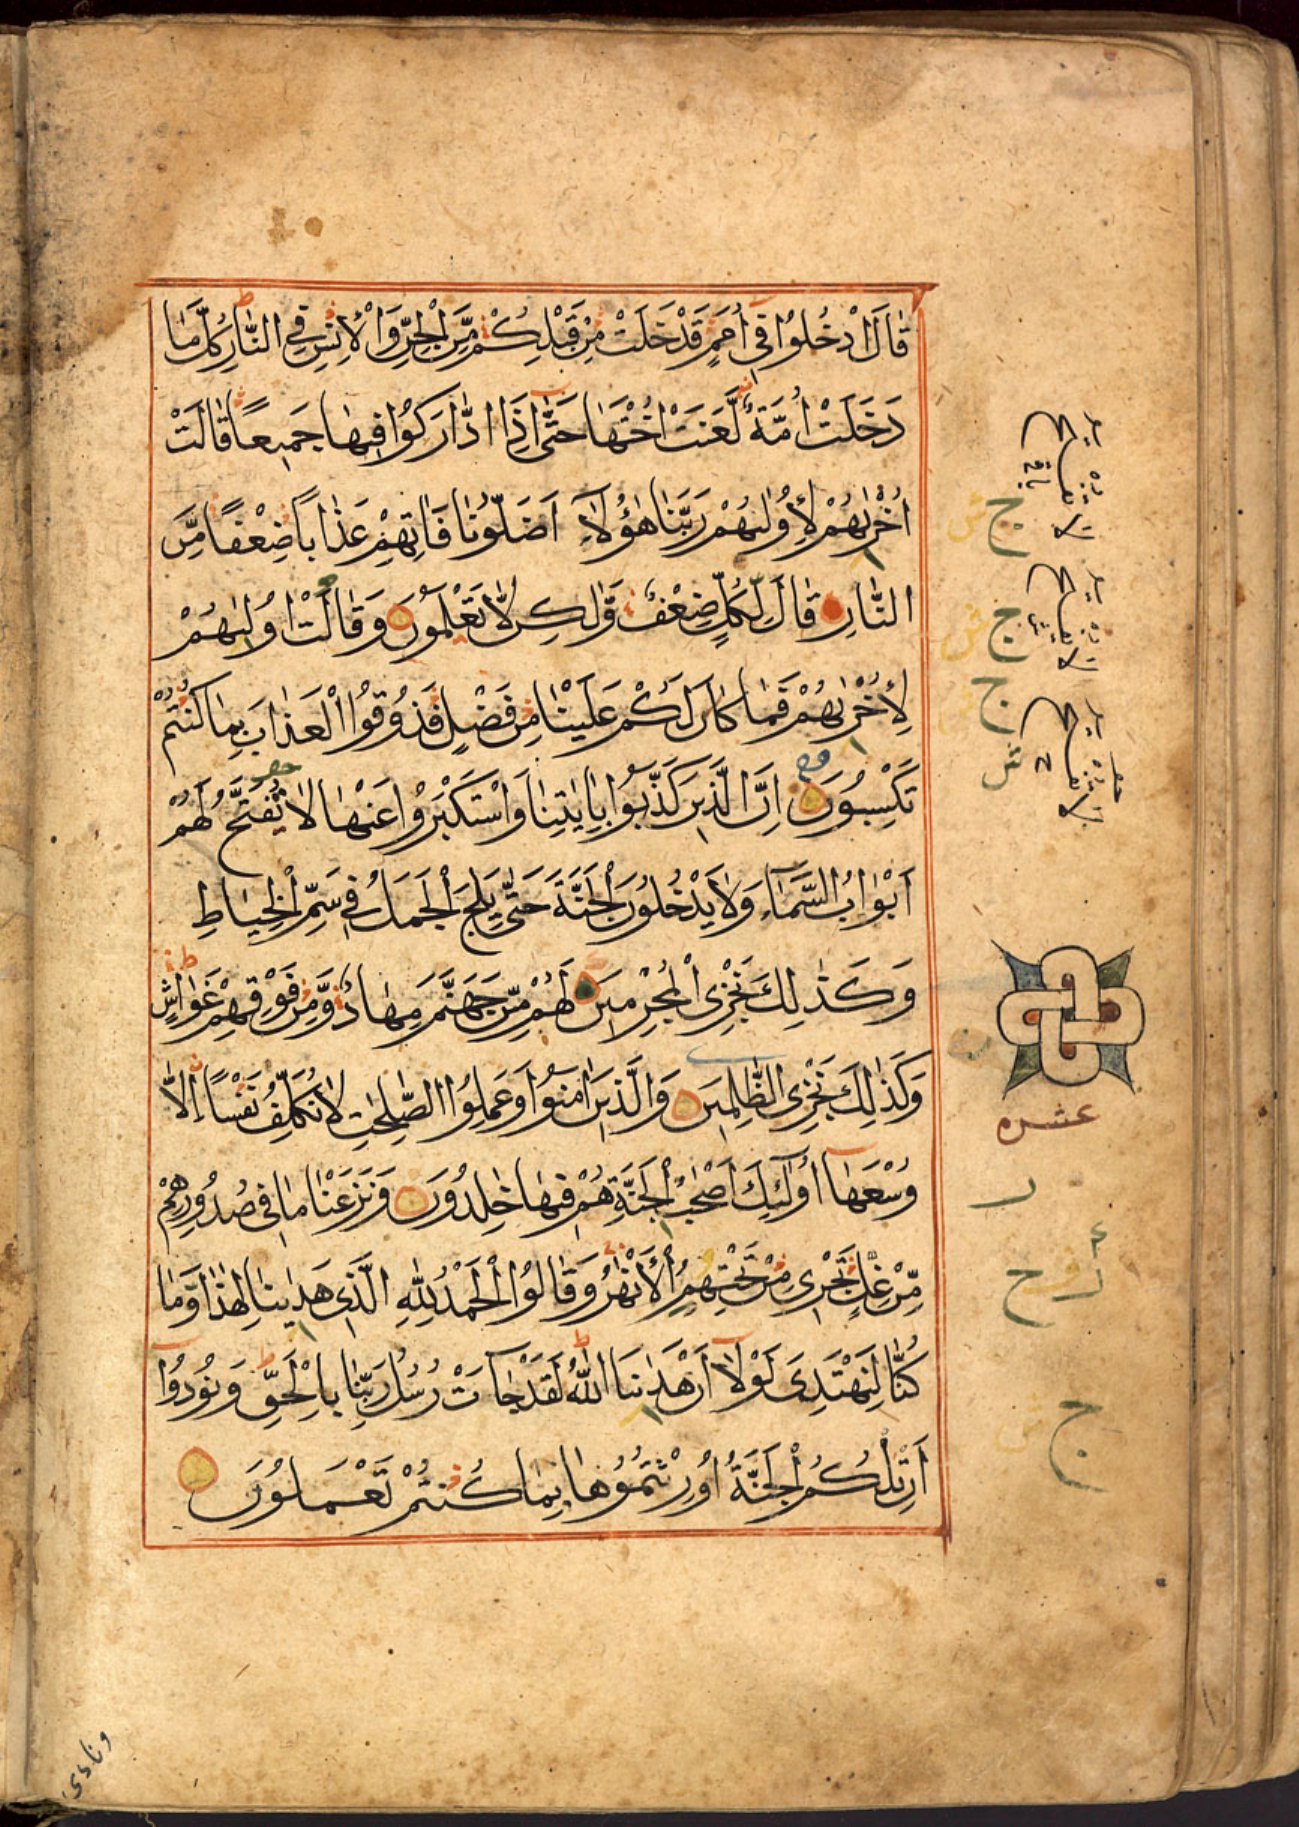 قَالَ ادْخُلُوا فِي أُمَمٍ قَدْ خَلَتْ مِنْ قَبْلِكُمْ مِنَ الْجِنِّ وَالْإِنْسِ فِي النَّارِ كُلَّمَا
دَخَلَتْ أُمَّةٌ لَعَنَتْ أُخْتَهَا حَتَّى إِذَا ادَّارَكُوا فِيهَا جَمِيعًا قَالَتْ
أُخْرٰىهُمْ لِأُولٰىهُمْ رَبَّنَا هٰؤُلَاءِ أَضَلُّونَا فَاٰتِهِمْ عَذَابًا ضِعْفًا مِنَ
النَّارِ قَالَ لِكُلٍّ ضِعْفٌ وَلٰكِنْ لَا تَعْلَمُونَ وَقَالَتْ أُولٰىهُمْ
لِأُخْرٰىهُمْ فَمَا كَانَ لَكُمْ عَلَيْنَا مِنْ فَضْلٍ فَذُوقُوا الْعَذَابَ بِمَا كُنْتُمْ
تَكْسِبُونَ إِنَّ الَّذِينَ كَذَّبُوا بِاٰيٰتِنَا وَاسْتَكْبَرُوا عَنْهَا لَا تُفَتَّحُ لَهُمْ
أَبْوَابُ السَّمَاءِ وَلَا يَدْخُلُونَ الْجَنَّةَ حَتَّى يَلِجَ الْجَمَلُ فِي سَمِّ الْخِيَاطِ
وَكَذٰلِكَ نَجْزِي الْمُجْرِمِينَ لَهُمْ مِنْ جَهَنَّمَ مِهَادٌ وَمِنْ فَوْقِهِمْ غَوَاشٍ
وَكَذٰلِكَ نَجْزِي الظّٰلِمِينَ وَالَّذِينَ اٰمَنُوا وَعَمِلُوا الصّٰلِحٰتِ لَا نُكَلِّفُ نَفْسًا إِلَّا
وُسْعَهَا أُولٰئِكَ أَصْحٰبُ الْجَنَّةِ هُمْ فِيهَا خٰلِدُونَ وَنَزَعْنَا مَا فِي صُدُورِهِمْ
مِنْ غِلٍّ تَجْرِي مِنْ تَحْتِهِمُ الْأَنْهٰرُ وَقَالُوا الْحَمْدُ لِلّٰهِ الَّذِي هَدٰىنَا لِهٰذَا وَمَا
كُنَّا لِنَهْتَدِيَ لَوْلَا أَنْ هَدٰىنَا اللّٰهُ لَقَدْ جَاءَتْ رُسُلُ رَبِّنَا بِالْحَقِّ وَنُودُوا
أَنْ تِلْكُمُ الْجَنَّةُ أُورِثْتُمُوهَا بِمَا كُنْتُمْ تَعْمَلُونَ
عشره
ونادى